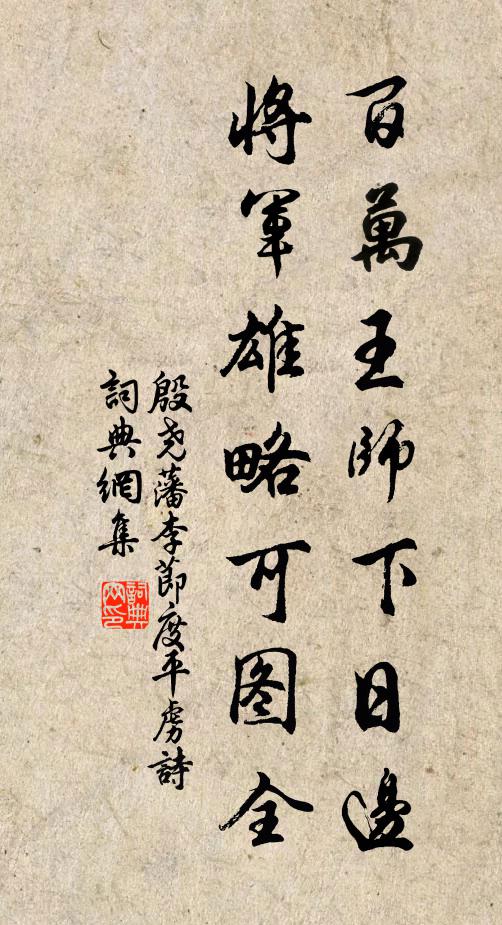 百萬王師下日邊
將軍雄略可图全
殷尧藩李節度平虏詩
詞典網集
詞典网印